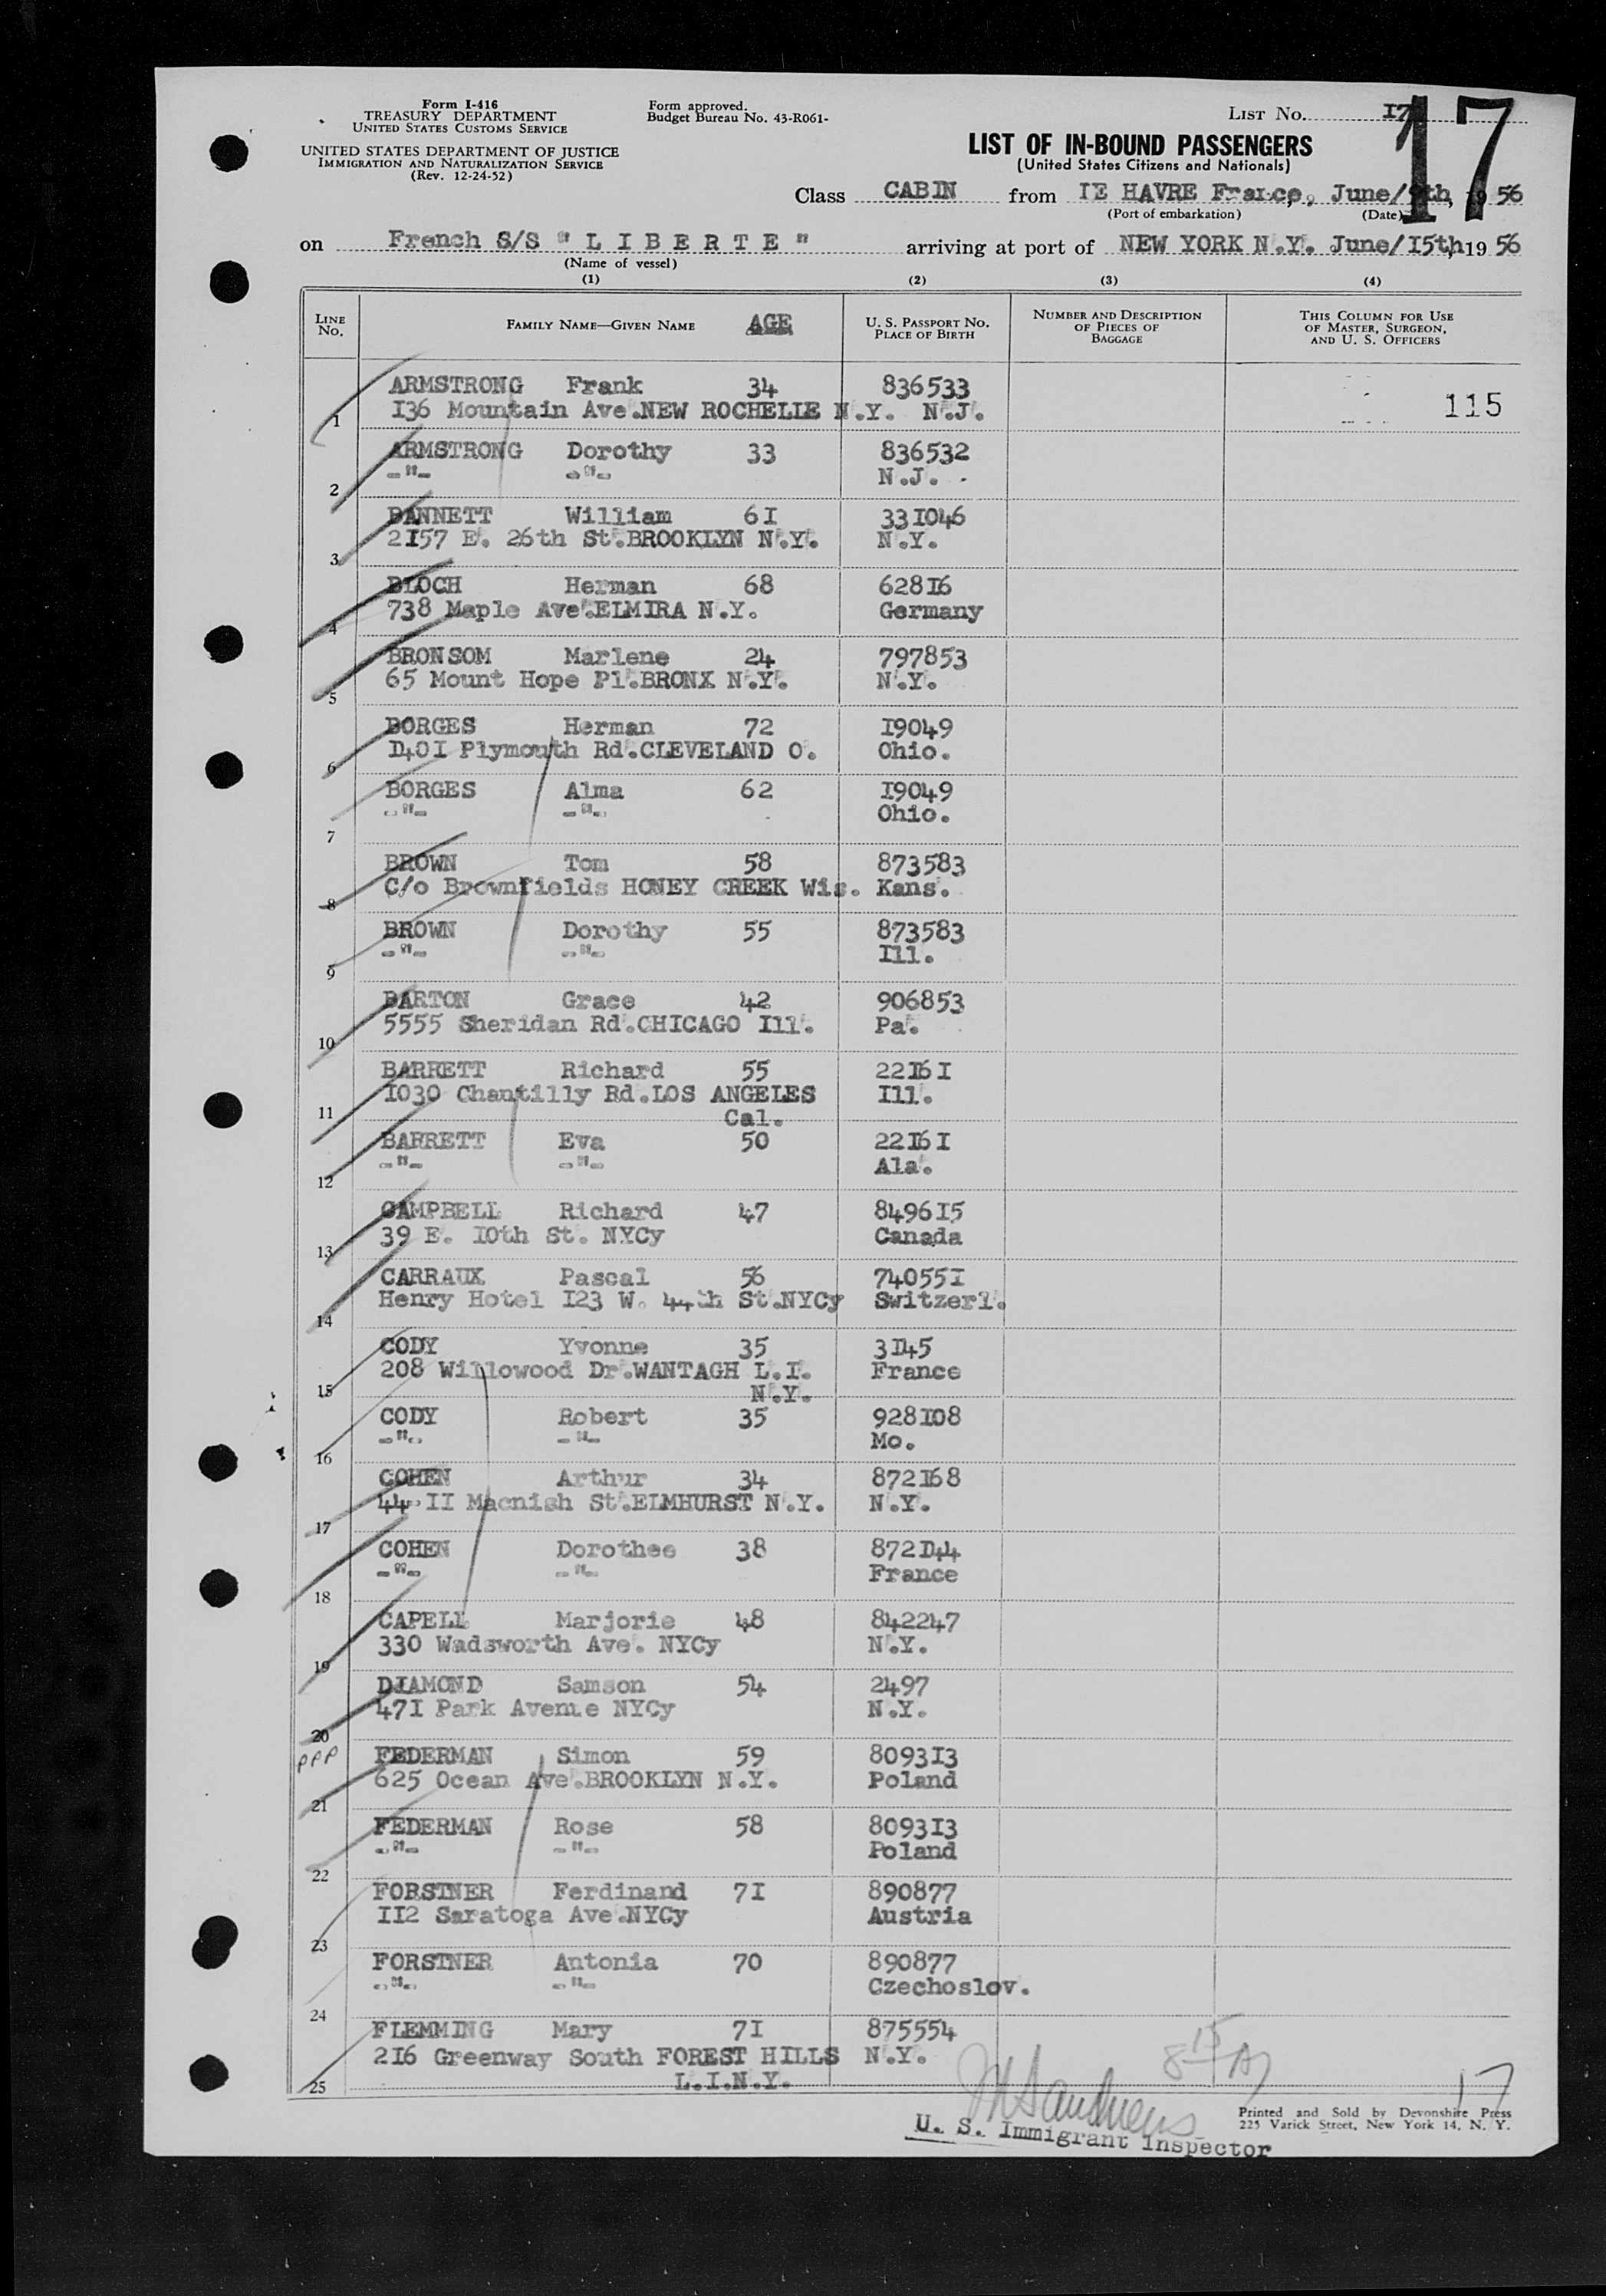 Form I-416
TREASURY DEPARTMENT
UNITED STATES CUSTOMS SERVICE
UNITED STATES DEPARTMENT OF JUSTICE
IMMIGRATION AND NATURALIZATION SERVICE
(Rev. 12-24-52)
Form approved.
Budget Bureau No. 43-R061-
LIST No. I7
17
LIST OF IN-BOUND PASSENGERS
(United States Citizens and Nationals)
Class CABIN from LE HAVRE France, June/9th, 1956
(Port of embarkation) (Date)
on French S/S " L I B E R T E " arriving at port of NEW YORK N.Y. June/I5th, 1956
(Name of vessel)
(1) (2) (3) (4)
LINE No. FAMILY NAME—GIVEN NAME AGE U. S. PASSPORT NO. PLACE OF BIRTH NUMBER AND DESCRIPTION OF PIECES OF BAGGAGE THIS COLUMN FOR USE OF MASTER, SURGEON, AND U. S. OFFICERS
ARMSTRONG Frank 34 836533 115
1 I36 Mountain Ave.NEW ROCHELLE N.Y. N.J.
ARMSTRONG Dorothy 33 836532
2 -"- -"- N.J.
BANNETT William 6I 33I046
3 2I57 E. 26th St.BROOKLYN N.Y. N.Y.
BLOCH Herman 68 628I6
4 738 Maple Ave.ELMIRA N.Y. Germany
BRONSOM Marlene 24 797853
5 65 Mount Hope Pl.BRONX N.Y. N.Y.
BORGES Herman 72 I9049
6 I40I Plymouth Rd.CLEVELAND O. Ohio.
BORGES Alma 62 I9049
7 -"- -"- Ohio.
BROWN Tom 58 873583
8 C/o Brownfields HONEY CREEK Wis. Kans.
BROWN Dorothy 55 873583
9 -"- -"- Ill.
BARTON Grace 42 906853
10 5555 Sheridan Rd.CHICAGO Ill. Pa.
BARRETT Richard 55 22I6I
11 I030 Chantilly Rd.LOS ANGELES Ill.
Cal.
BARRETT Eva 50 22I6I
12 -"- -"- Ala.
CAMPBELL Richard 47 8496I5
13 39 E. I0th St. NYCy Canada
CARRAUX Pascal 56 74055I
14 Henry Hotel I23 W. 44th St.NYCy Switzerl.
CODY Yvonne 35 3I45
15 208 Willowood Dr.WANTAGH L.I. France
N.Y.
CODY Robert 35 928I08
16 -"- -"- Mo.
COHEN Arthur 34 872I68
17 44-II Macnish St.ELMHURST N.Y. N.Y.
COHEN Dorothee 38 872I44
18 -"- -"- France
CAPELL Marjorie 48 842247
19 330 Wadsworth Ave. NYCy N.Y.
DIAMOND Samson 54 2497
20 47I Park Avenue NYCy N.Y.
PPP
FEDERMAN Simon 59 8093I3
21 625 Ocean Ave.BROOKLYN N.Y. Poland
FEDERMAN Rose 58 8093I3
22 -"- -"- Poland
FORSTNER Ferdinand 7I 890877
23 II2 Saratoga Ave.NYCy Austria
FORSTNER Antonia 70 890877
24 -"- -"- Czechoslov.
FLEMMING Mary 7I 875554
25 2I6 Greenway South FOREST HILLS N.Y.
L.I.N.Y.
17
U. S. Immigrant Inspector
Printed and Sold by Devonshire Press
225 Varick Street, New York 14, N. Y.